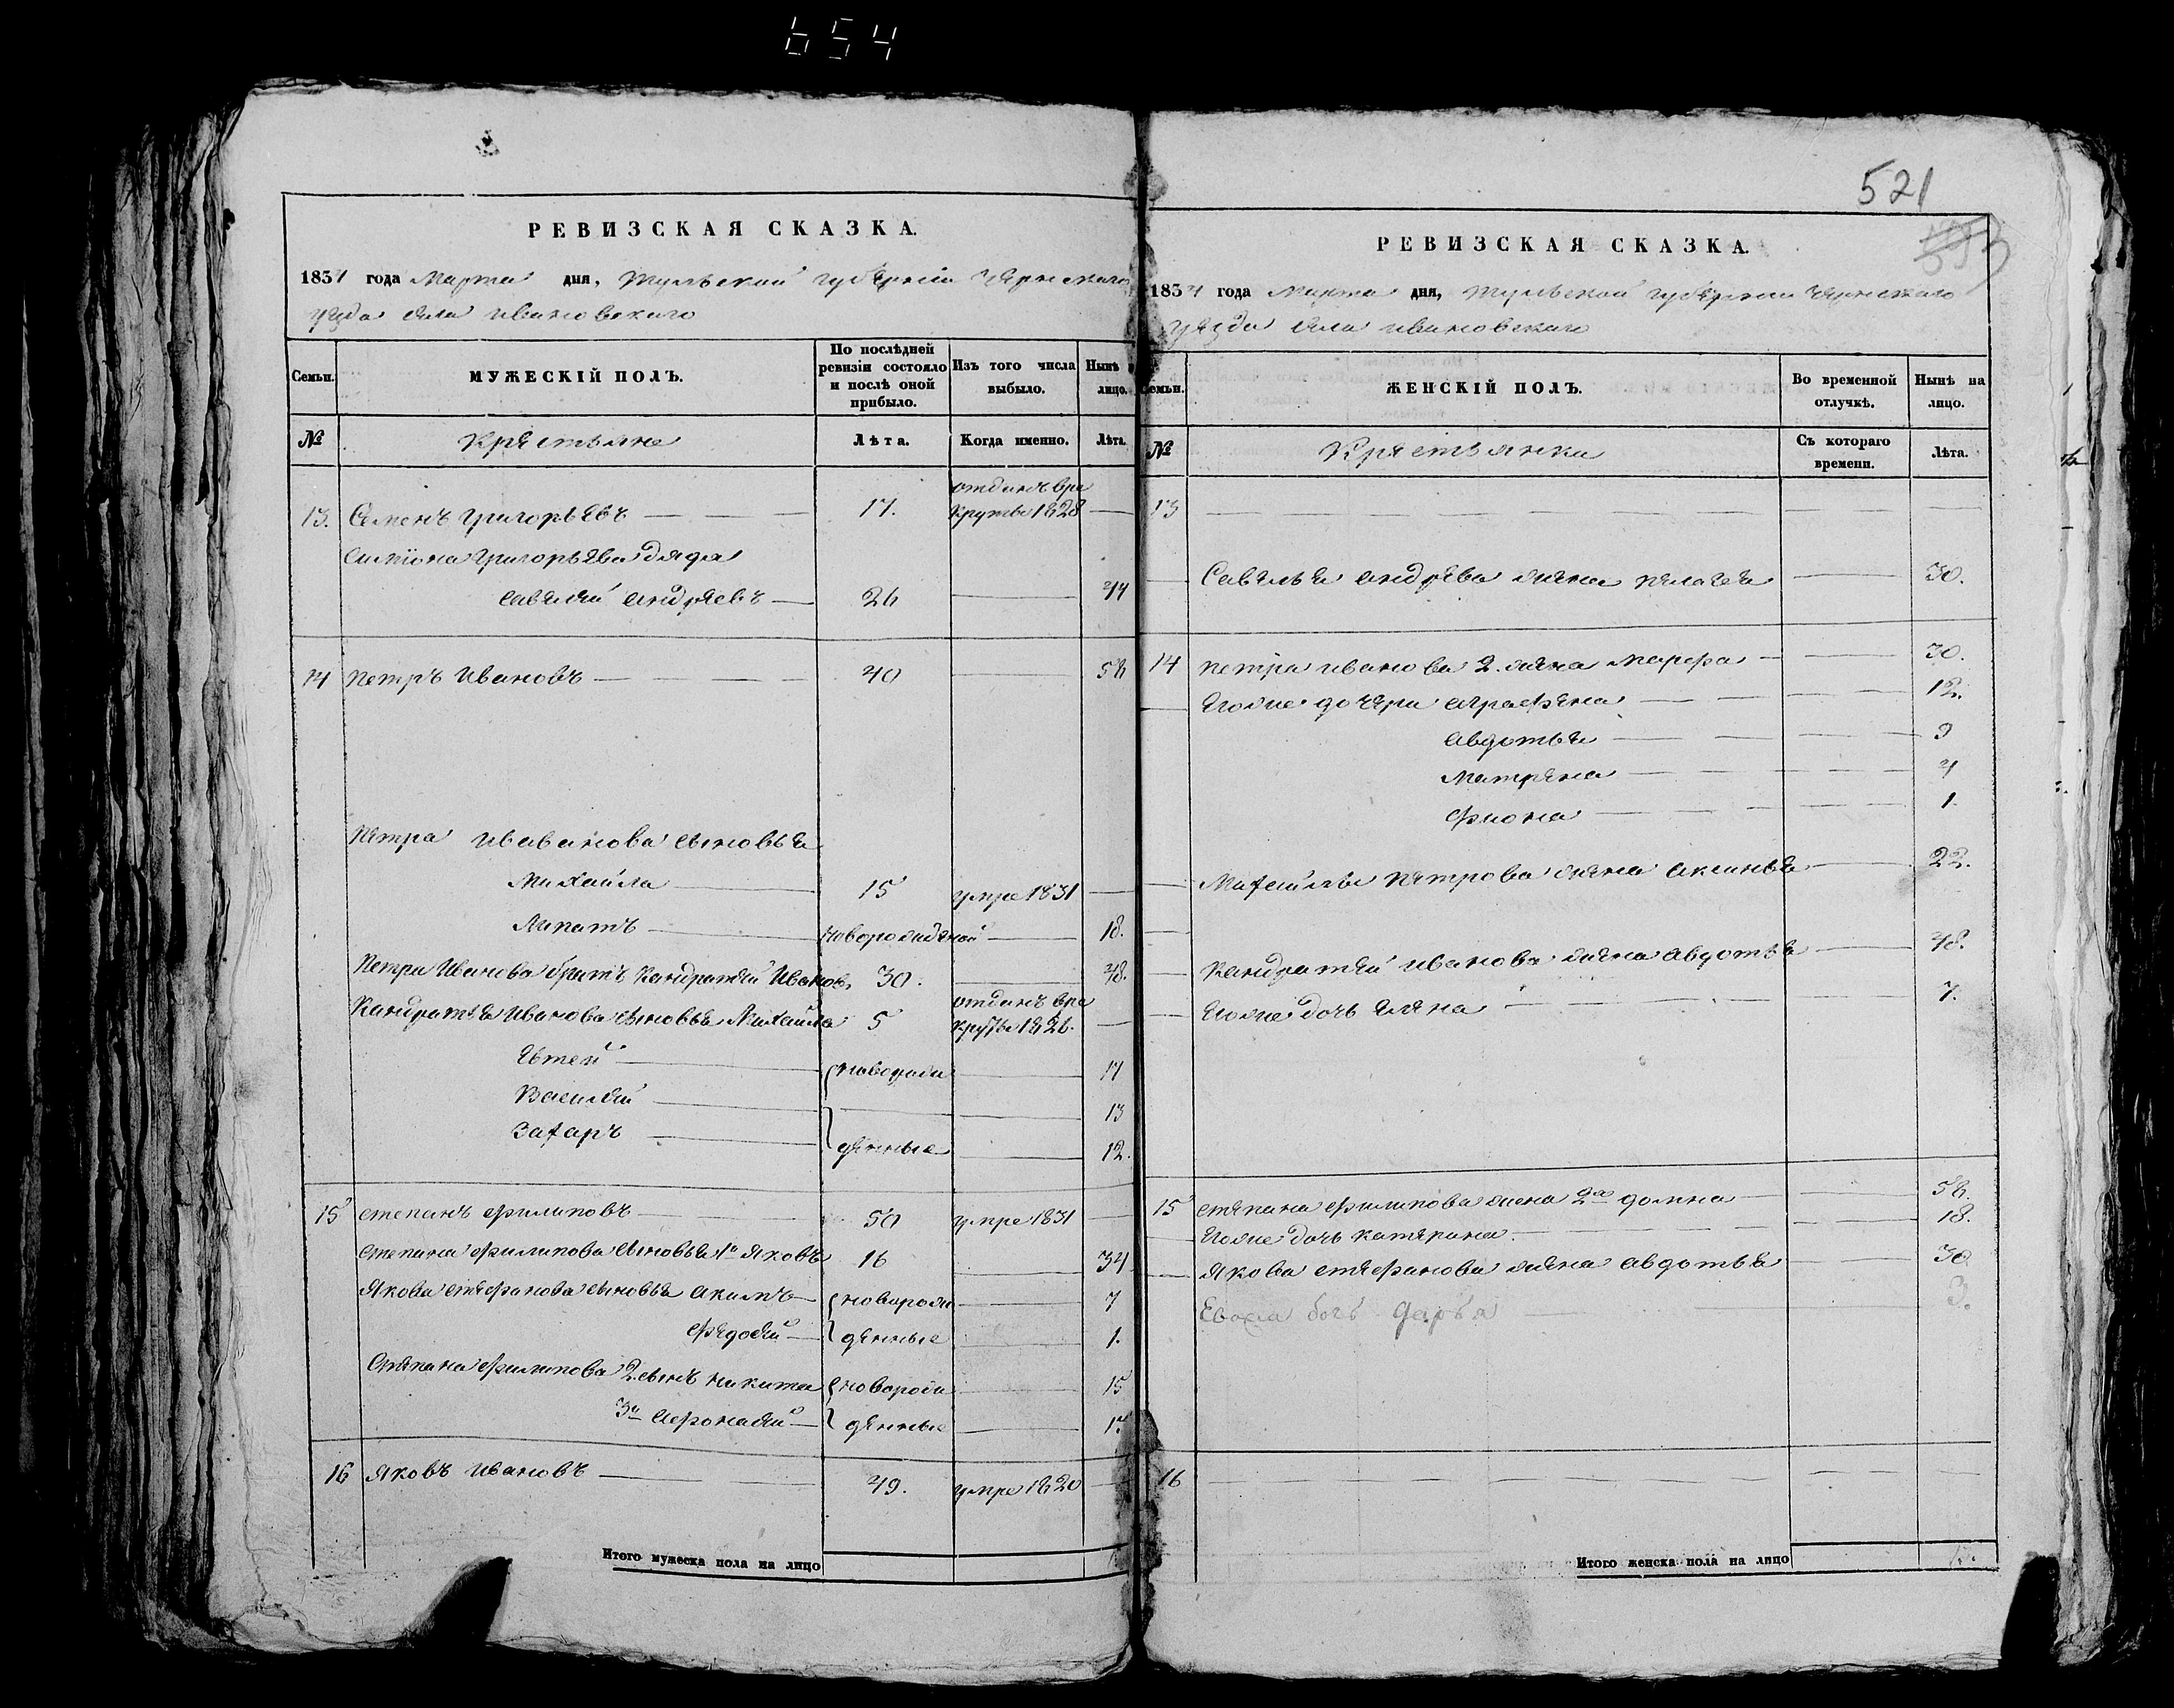 654
РЕВИЗСКАЯ СКАЗКА.
1834 года Марта дня, Тульской губернии Чернскаго
уезда села Ивановскаго
Семьи.
МУЖЕСКІЙ ПОЛЪ.
По послѣдней ревизіи состояло и послѣ оной прибыло.
Изъ того числа выбыло.
Нынѣ лицо.
№
Крестьяне
Лѣта.
Когда именно.
Лѣта.
13. Семенъ Григорьевъ 17. отданъ в ре
круты 1828
Симіона Григорьева дядя
Савелей Андреевъ 26 44
14 Петръ Ивановъ 40 56
Петра Иваванова сыновья
Михайла 15 умре 1831
Липатъ новорожденой 18.
Петра Иванова братъ Кандратей Иванов 30. 48.
Кандратья Иванова сыновья Михайла 5 отданъ в ре
круты 1826.
новорож 17
Василей 13
Захаръ денные 12.
15 Степанъ Филиповъ 50 умре 1831
Степана Филипова сыновья 1й Яковъ 16 34
Якова Стефанова сыновья Акимъ новорож 7
Федосей денные 1.
Степана Филипова 2 сынъ Никита новорож 15
3й Афонасей денные
16 Яковъ Ивановъ 49. умре 1820
Итого мужеска пола на лицо
521
РЕВИЗСКАЯ СКАЗКА.
1834 года Марта дня, Тульской губернии Чернскаго
уезда села Ивановскаго
Семьи.
ЖЕНСКІЙ ПОЛЪ.
Во временной отлучкѣ.
Нынѣ на лицо.
№
Крестьянки
Съ котораго времени.
Лѣта.
13
Савелья Андрева жена Пелагея 30.
14 Петра Иванова 2. жена Марфа 30.
Евоже дочери Аграфена 12.
Авдотья 9
Матрена 4
Фиона 1.
Михайлы Петрова жена Аксинья 22.
Кандратей Иванова жена Авдотья 48.
Евоже дочь Елена 7.
15 Степана Филипова жена 2я Домна 56.
Евоже дочь Катерина 18.
Якова Стефанова жена Авдотья 30
Евожа дочь Дарья 3.
16
Итого женска пола на лицо